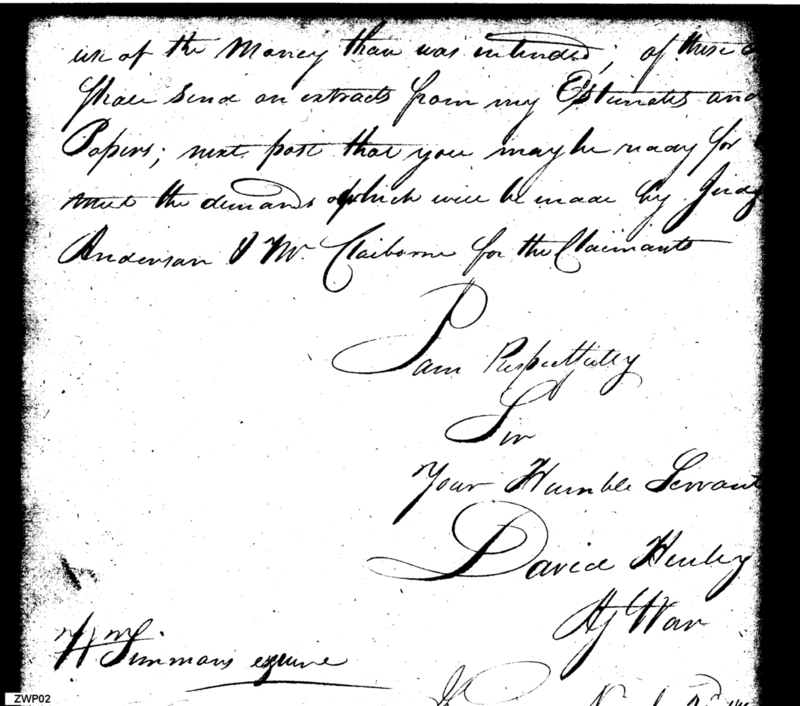 use of the Money than was intended; of these
shall send on extracts from my Estimates and
Papers; next post that you may be ready for
meet the demands which will be made by Judg
Anderson & Mr. Claiborne for the Claimants
I am Respectfully
Sir
Your Humble Servant
David Henley
Ag War
Wm Simmons esquire
ZWP02